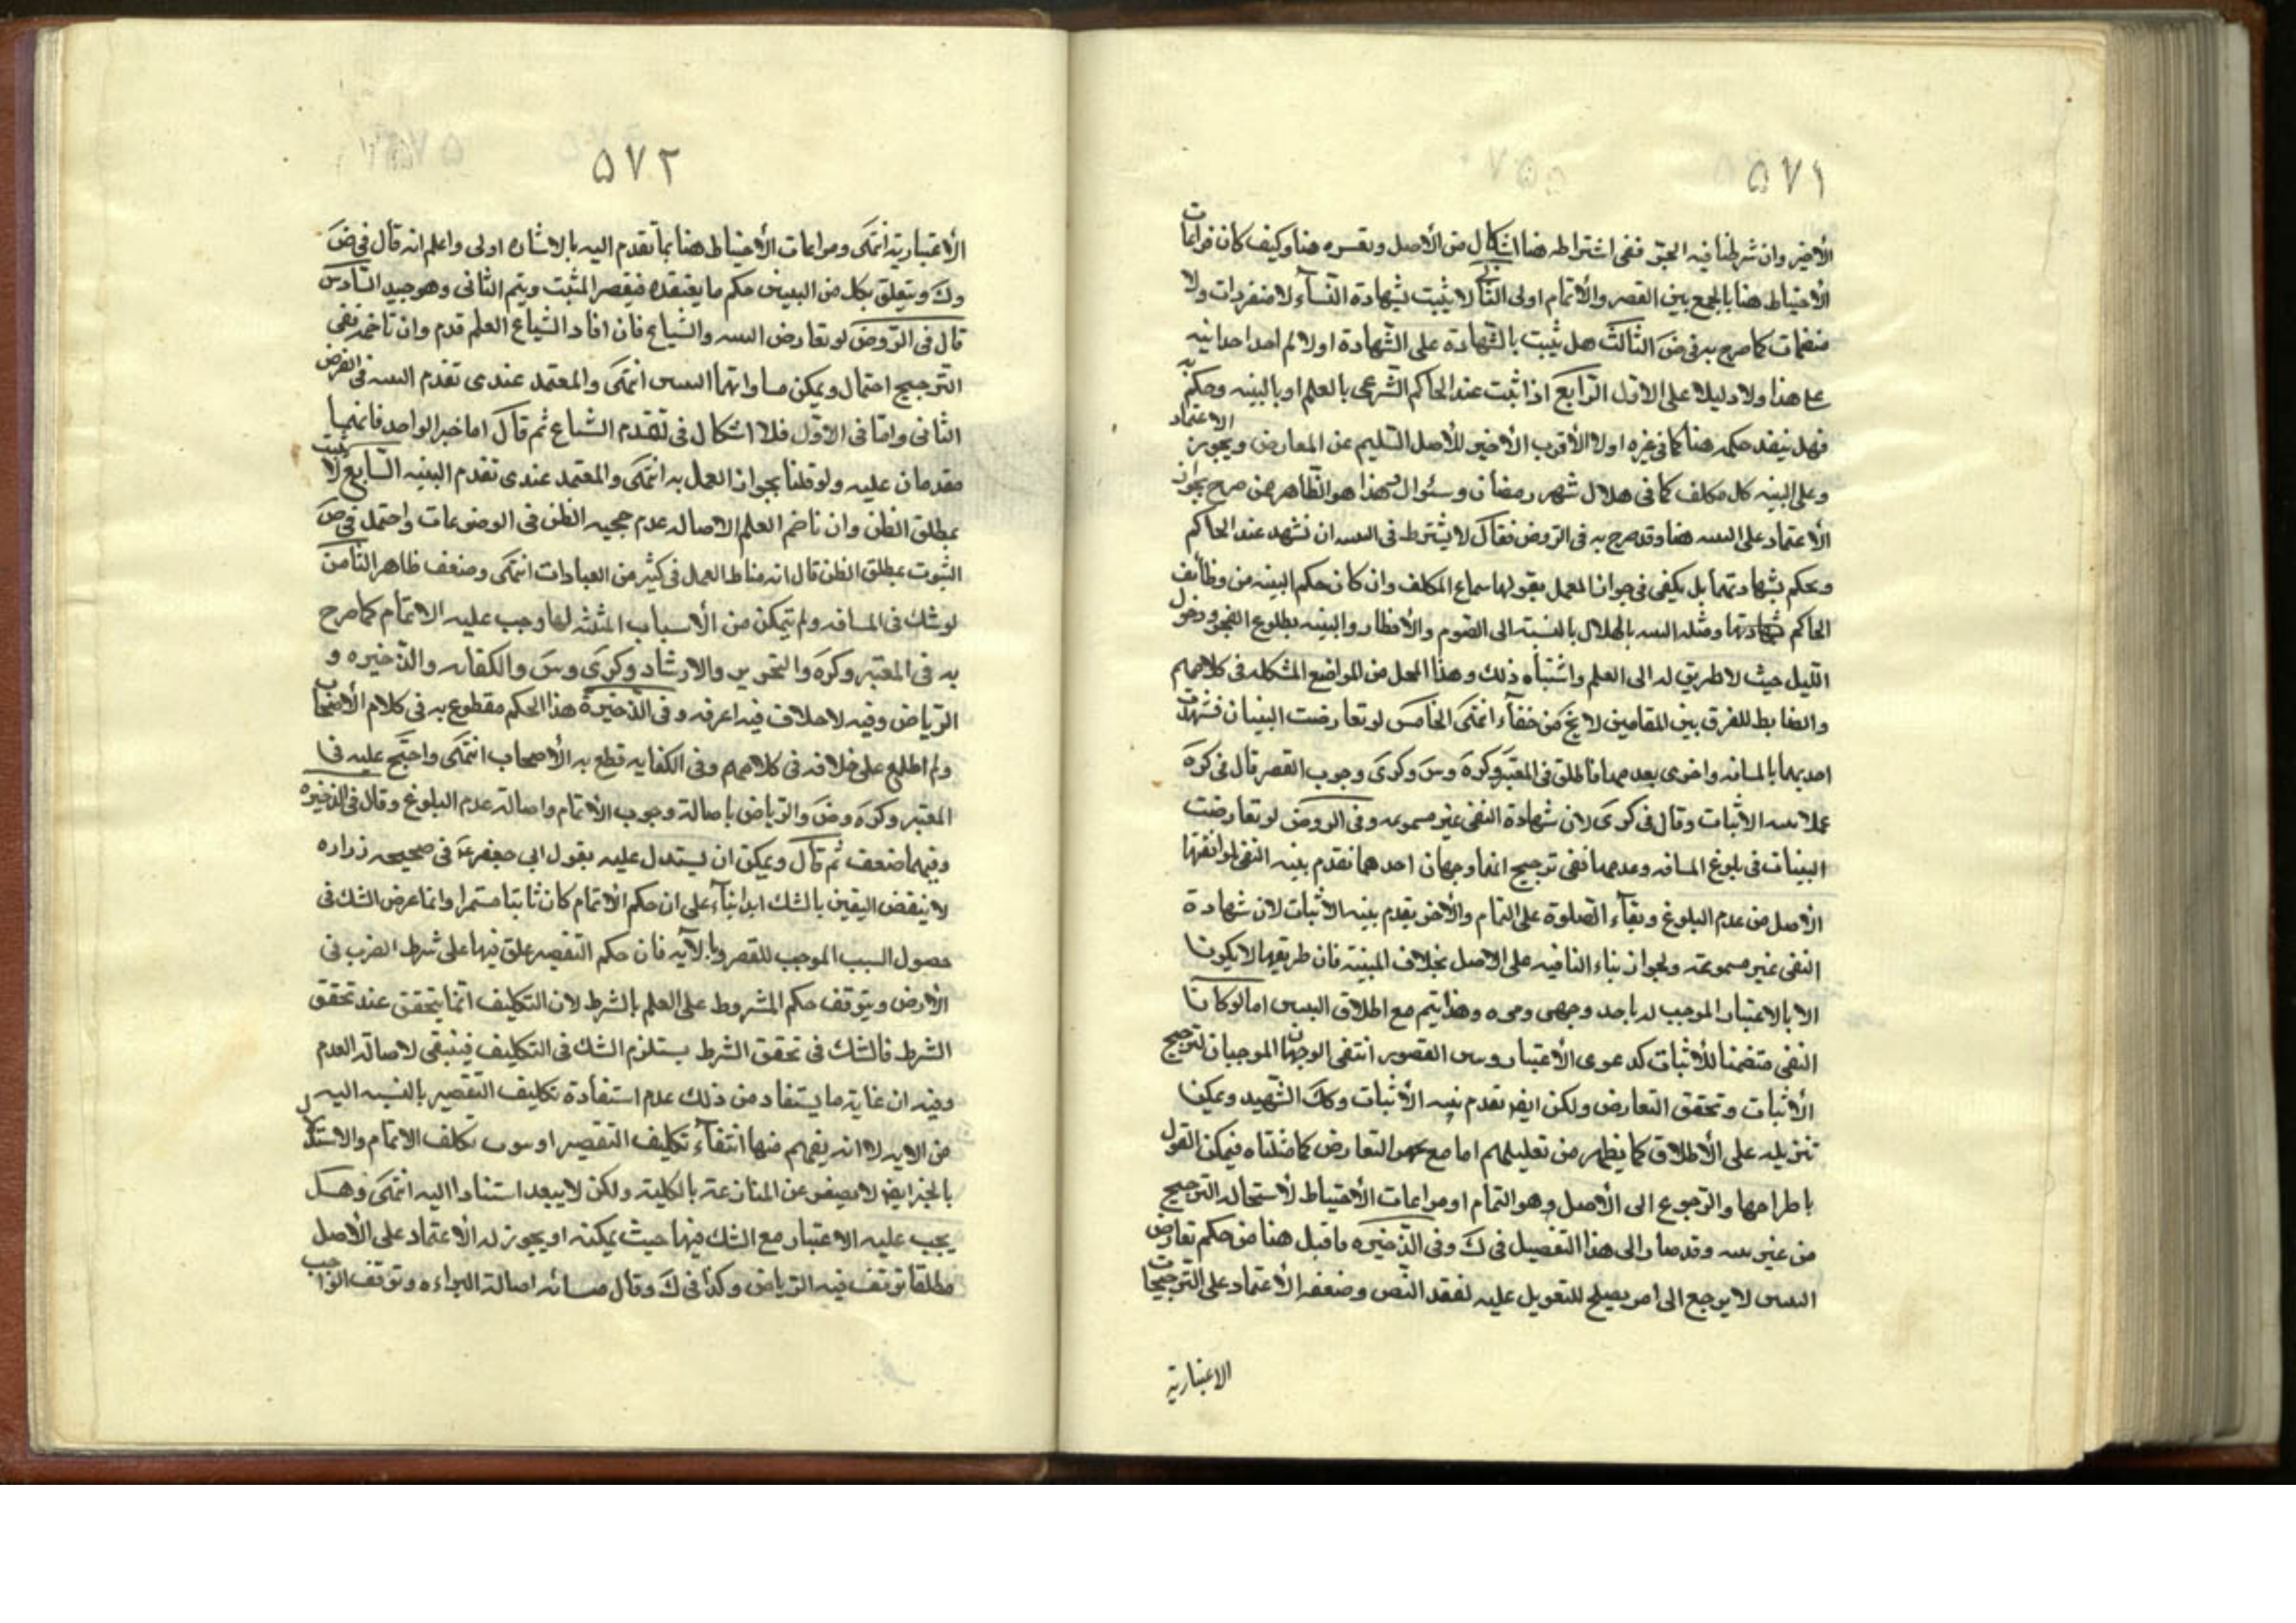 ٥٧١
الأخير وان شرطنا فيه الحق ففى اشتراطه هنا اشكال من الأصل و هنا وكيف كان فمراعات
الأحتياط هنا بالجمع بين القصر والأتمام اولى الثانى لا يثبت بشهادة النسآء لا منفردات ولا
منضمات كما صرح به فى ض الثالث هل يثبت بالشهادة على الشهادة اولا لم اجد احدا نبه
على هذا ولا دليلا على الاول الرابع اذا ثبت عند الحاكم الشرعى بالعلم او بالبينه وحكم به
فهل ينفذ حكمه هنا كما فى غيره اولا الأقرب الأخير للأصل السليم عن المعارض ويجوز الاعتماد
على البينه كل مكلف كما فى هلال شهر رمضان وشوال وهذا هو الظاهر من صرح بجواز
الأعتماد على البينه هنا وقد صرح به فى الروض فقال لا يشترط فى البينه ان تشهد عند الحاكم
ويحكم بشهادتهما بل يكفى فى جواز العمل بقولها سماع المكلف وان كان حكم البينه من وظائف
الحاكم شهادتها ومثله البينه بالهلال بالنسبة الى الصوم والأفطار والبينه بطلوع الفجر ودخول
الليل حيث لا طريق له الى العلم واشتباه ذلك وهذا المحل من المواضع المشكله فى كلامهم
والضابط للفرق بين المقامين لا يخ من خفآء انتهى الخامس لو تعارضت البينتان فشهدت
احديهما بالمسافه واخرى بعدمها فاطلق فى المعتبر وكره وس وكرى وجوب القصر قال فى كره
عملا ببينه الاثبات وقال فى كرى لان شهادة النفى غير مسموعه وفى الروض لو تعارضت
البينات فى بلوغ المسافه وعدمها ففى ترجيح ايها وجهان احدهما تقدم بينه النفى لموافقتها
الأصل من عدم البلوغ وبقآء الصلوة على التمام والأخر يقدم بينه الاثبات لان شهادة
النفى غير مسموعة ولجواز بناء النافيه على الاصل بخلاف المبينة فان طريقها لا يكون
الا بالاعتبار الموجب له باحد وجهى وهذا يتم مع اطلاق البينتين اما لو كانتا
النفى متضمنا للأثبات كدعوى الأعتبار القصور انتفى الوجهان الموجبان لترجيح
الأثبات وتحقق التعارض ولكن ايض تقدم بينه الأثبات وكك الشهيد ويمكن
تنزيله على الأطلاق كما يظهر من تعليلهم اما مع التعارض كما مثلناه فيمكن القول
باطراحها والرجوع الى الأصل وهو التمام او مراعات الأحتياط لأستحاله الترجيح
من غير بينه وقد صار الى هذا التفصيل فى ك وفى الذخيره ما قيل هنا من حكم تعارض
البينتين لا يرجع الى امر يصلح للتعويل عليه لفقد النص وضعف الأعتماد على الترجيحات
الاعتبارية
٥٧٢
الأعتبارية انتهى ومراعات الأحتياط هنا بما تقدم اليه بالاشاره اولى واعلم انه قال فى ض
وك ويتعلق بكل من البينتين حكم ما يعتقده فيقصر المثبت ويتم الثانى وهو جيد السادس
قال فى الروض لو تعارض البينه والشياع فان افاد الشياع العلم قدم وان تاخم ففى
الترجيح احتمال ويمكن مساواتهما البينتين انتهى والمعتمد عندى تقدم البينه فى الفرض
الثانى واما فى الاول فلا اشكال فى تقدم الشياع ثم قال اما خبر الواحد فانهما
مقدمان عليه ولو قلنا بجواز العمل به انتهى والمعتمد عندى تقدم البينه السابع لا يثبت
بمطلق الظن وان تاخم العلم لاصاله عدم حجيه الظن فى الموضوعات واحتمل فى ض
الثبوت بمطلق الظن قال انه مناط العمل فى كثير من العبادات انتهى وضعف ظاهر الثامن
لو شك فى المسافه ولم يتمكن من الأسباب المثبته لها وجب عليه الاتمام كما صرح
به فى المعتبر وكره والتحرير والارشاد وكرى وس والكفايه والذخيره و
الرياض وفيه لا خلاف فيه اعرفه وفى الذخيرة هذا الحكم مقطوع به فى كلام الأصحاب
ولم اطلع على خلافه فى كلامهم وفى الكفايه قطع به الأصحاب انتهى واحتج عليه فى
المعتبر وكره وض والرياض باصالة وجوب الأتمام واصالة عدم البلوغ وقال فى الذخيره
وفيهما ضعف ثم قال ويمكن ان يستدل عليه بقول ابى جعفر ع فى صحيحه زراره
لا ينقض اليقين بالشك ابدا بنآء على ان حكم الأتمام كان ثابتا مستمرا وانما عرض الشك فى
حصول السبب الموجب للقصر وبالآيه فان حكم التقصير علق فيها على شرط الضرب فى
الأرض ويتوقف حكم المشروط على العلم بالشرط لان التكليف انما يتحقق عند تحقق
الشرط فالشك فى تحقق الشرط يستلزم الشك فى التكليف فينبغى لاصالة العدم
وفيه ان غاية ما يستفاد من ذلك عدم استفادة تكليف التقصير بالنسبه اليه
من الايه لا انه يفهم منها انتفآء تكليف التقصير او ثبوت تكليف الاتمام والاستدلال
بالخبر ايض لا يصفو عن المنازعة بالكلية ولكن لا يبعد استنادا اليه انتهى وهل
يجب عليه الاعتبار مع الشك فيها حيث يمكنه او يجوز له الأعتماد على الأصل
مطلقا توقف فيه الرياض وكذا فى ك وقال اصالة البراءه وتوقف الواجب